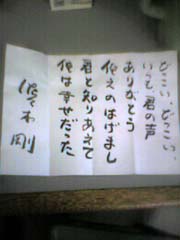 どこい、どこい、
いつも君の声
ありがとう
代えのはげまし
君と知りあえて
俺は幸せだった
佐々木剛